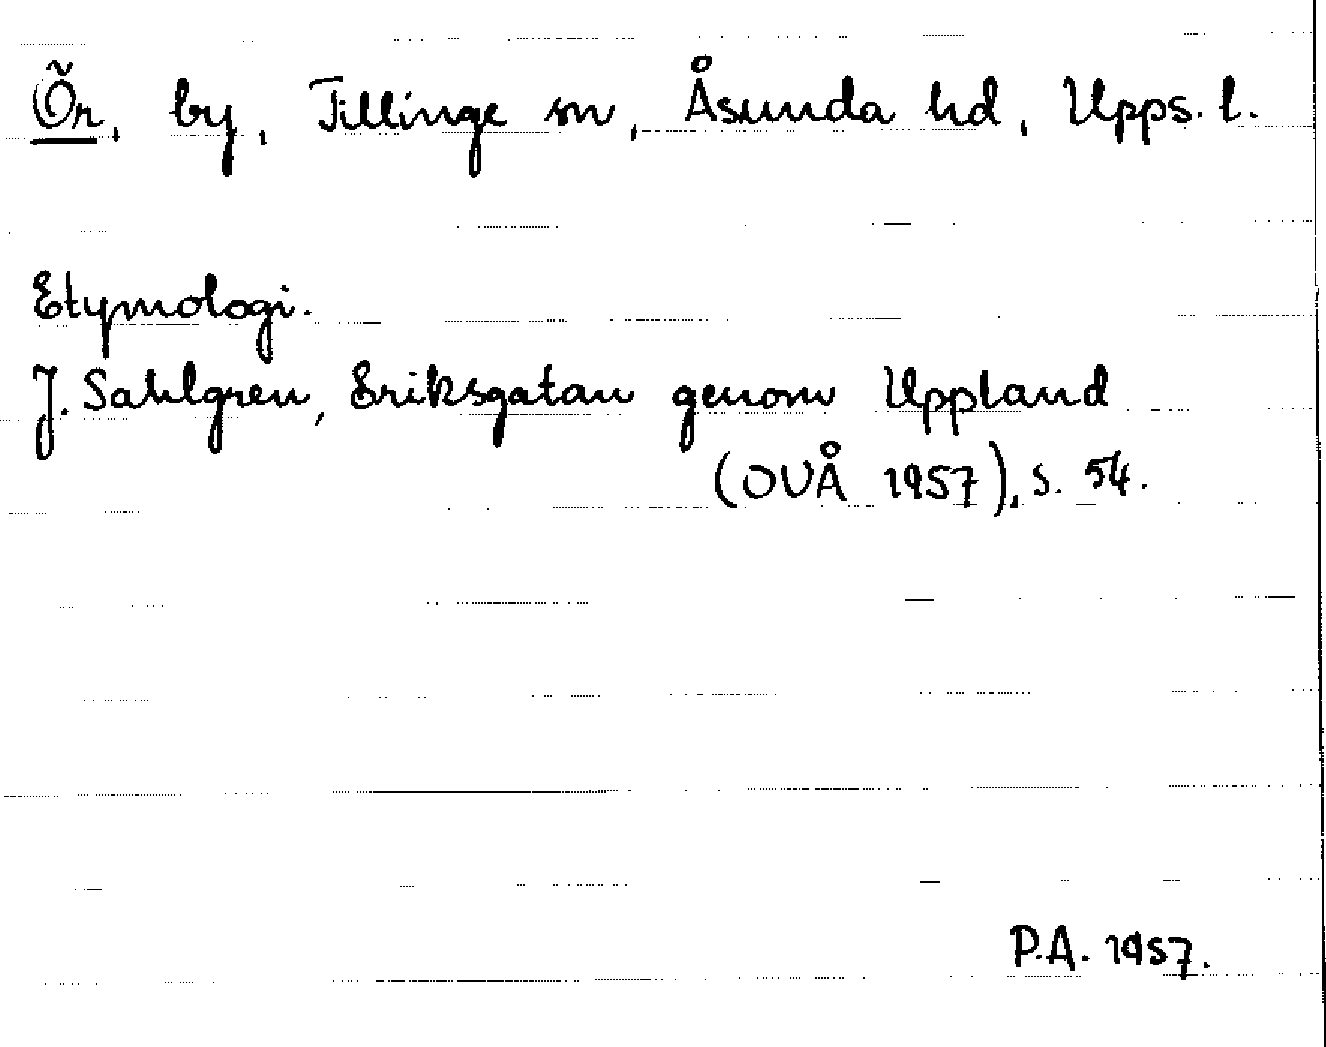 Õn, by, Tillinge sn, Åsunda hd, Upps. l.
Etymologi.
J. Sahlgren, Eriksgatan genom Uppland
(OUÅ 1957), s. 54.
P.A. 1957.